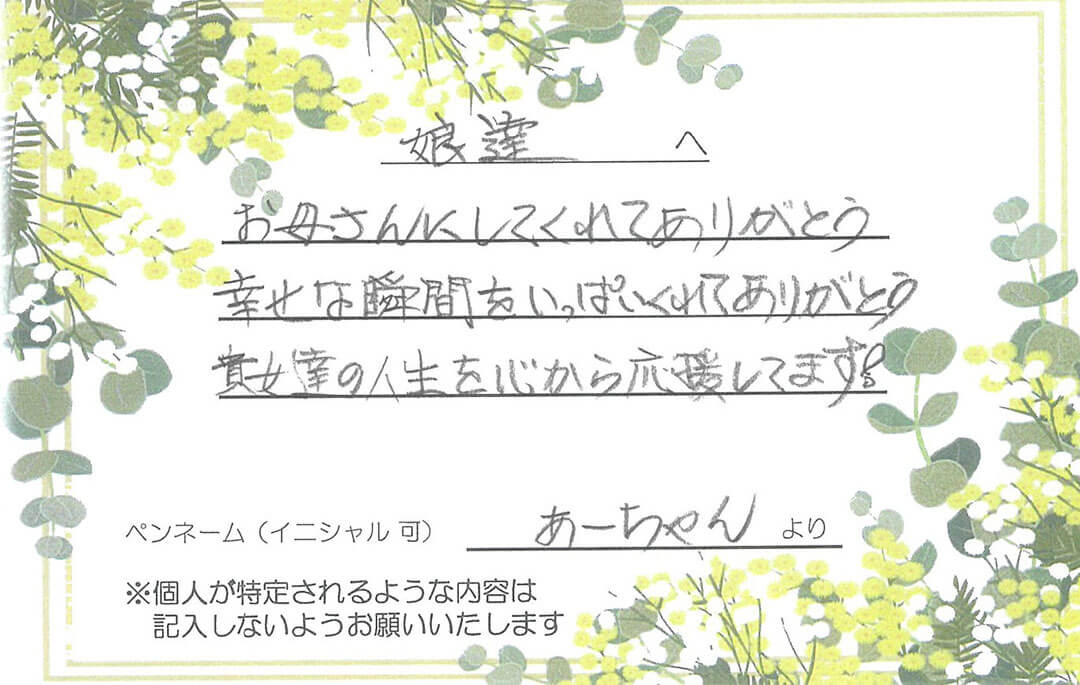 娘達 へ
お母さんにしてくれてありがとう
幸せな瞬間をいっぱいくれてありがとう
貴女達の人生を心から応援してます!
ペンネーム（イニシャル 可） あーちゃん より
※個人が特定されるような内容は
記入しないようお願いいたします